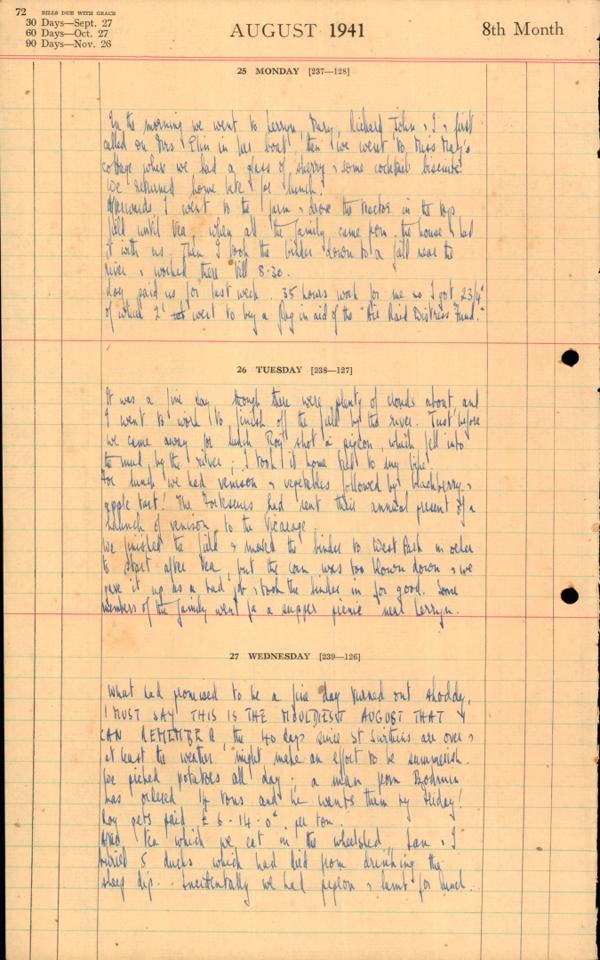 72 BILLS DUE WITH GRACE
30 Days—Sept. 27
60 Days—Oct. 27
90 Days—Nov. 26
AUGUST 1941
8th Month
25 MONDAY [237—128]
In the morning we went to Lerryn, Mary, Richard John & I & first
called on Mrs in her boat, then we went to Miss May's
cottage where we had a glass of sherry & some cocktail biscuits.
We returned home late for lunch!
Afterwards I went to the farm & drove the tractor in the top
field until tea, when all the family came from the house & had
it with us. Then I took the binder down to a field near the
river & worked there till 8-30.
Roy paid us for last week. 35 hours work for me so I got 23/4d
of which 2d went to buy a flag in aid of the "Air Raid Distress Fund."
26 TUESDAY [238—127]
It was a fine day though there were plenty of clouds about, and
I went to work to finish off the field by the river. Just before
we came away for lunch Roy shot a pigeon, which fell into
the mud by the river; I took it home tied to my bike.
For lunch we had venison & vegetables followed by blackberry &
apple tart! The Fortescues had sent their annual present of a
haunch of venison to the Vicarage.
We finished the field & moved the binder to West Park in order
to start after tea, but the corn was too blown down & we
gave it up as a bad job & took the binder in for good. Some
members of the family went for a supper picnic near Lerryn.
27 WEDNESDAY [239—126]
What had promised to be a fine day turned out shoddy.
I MUST SAY THIS IS THE MOULDIEST AUGUST THAT I
CAN REMEMBER, the 40 days since St Swithins are over &
at least the weather might make an effort to be summerish.
We picked potatoes all day; a man from Bodmin
has ordered 14 tons and he wants them by Friday!
Roy gets paid £6-14-0d per ton.
After tea which we eat in the wheelshed, Ian & I
buried 5 ducks which had died from drinking the
sheep dip. Incidentally we had pigeon & lamb for lunch.